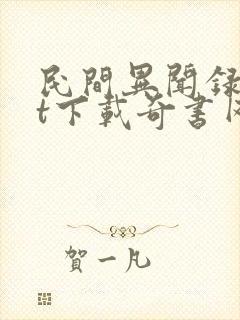 民間異聞録
t下載奇書网
賀一凡